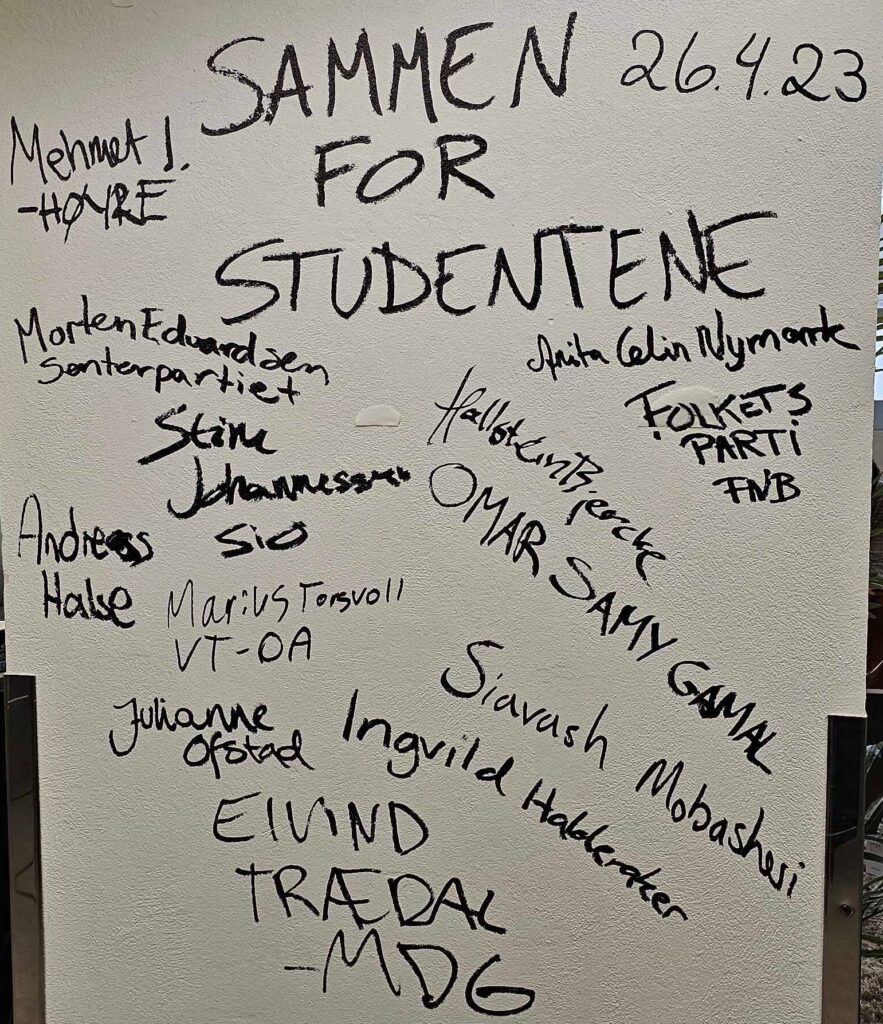 SAMMEN 26.4.23
FOR
STUDENTENE
Mehmet I.
-HØYRE
Morten Edvardsen
Senterpartiet
Anita Celin Nymark
FOLKETS
PARTI
FNB
Stine
Johannessen
SiO
Hallstein Bjercke
OMAR SAMY GAMAL
Andreas
Halse
Marius Torsvoll
VT-OA
Siavash Mobasheri
Julianne
Ofstad
Ingvild Halderaker
EIVIND
TRÆDAL
-MDG